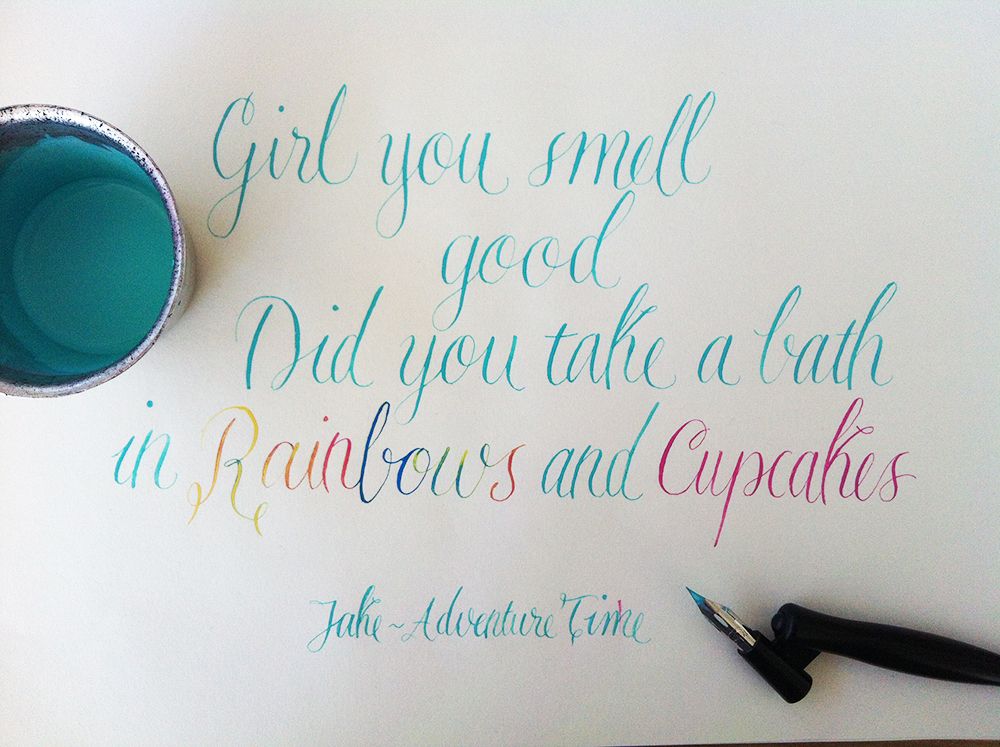 Girl you smell
good
Did you take a bath
in Rainbows and Cupcakes
Jake ~ Adventure Time